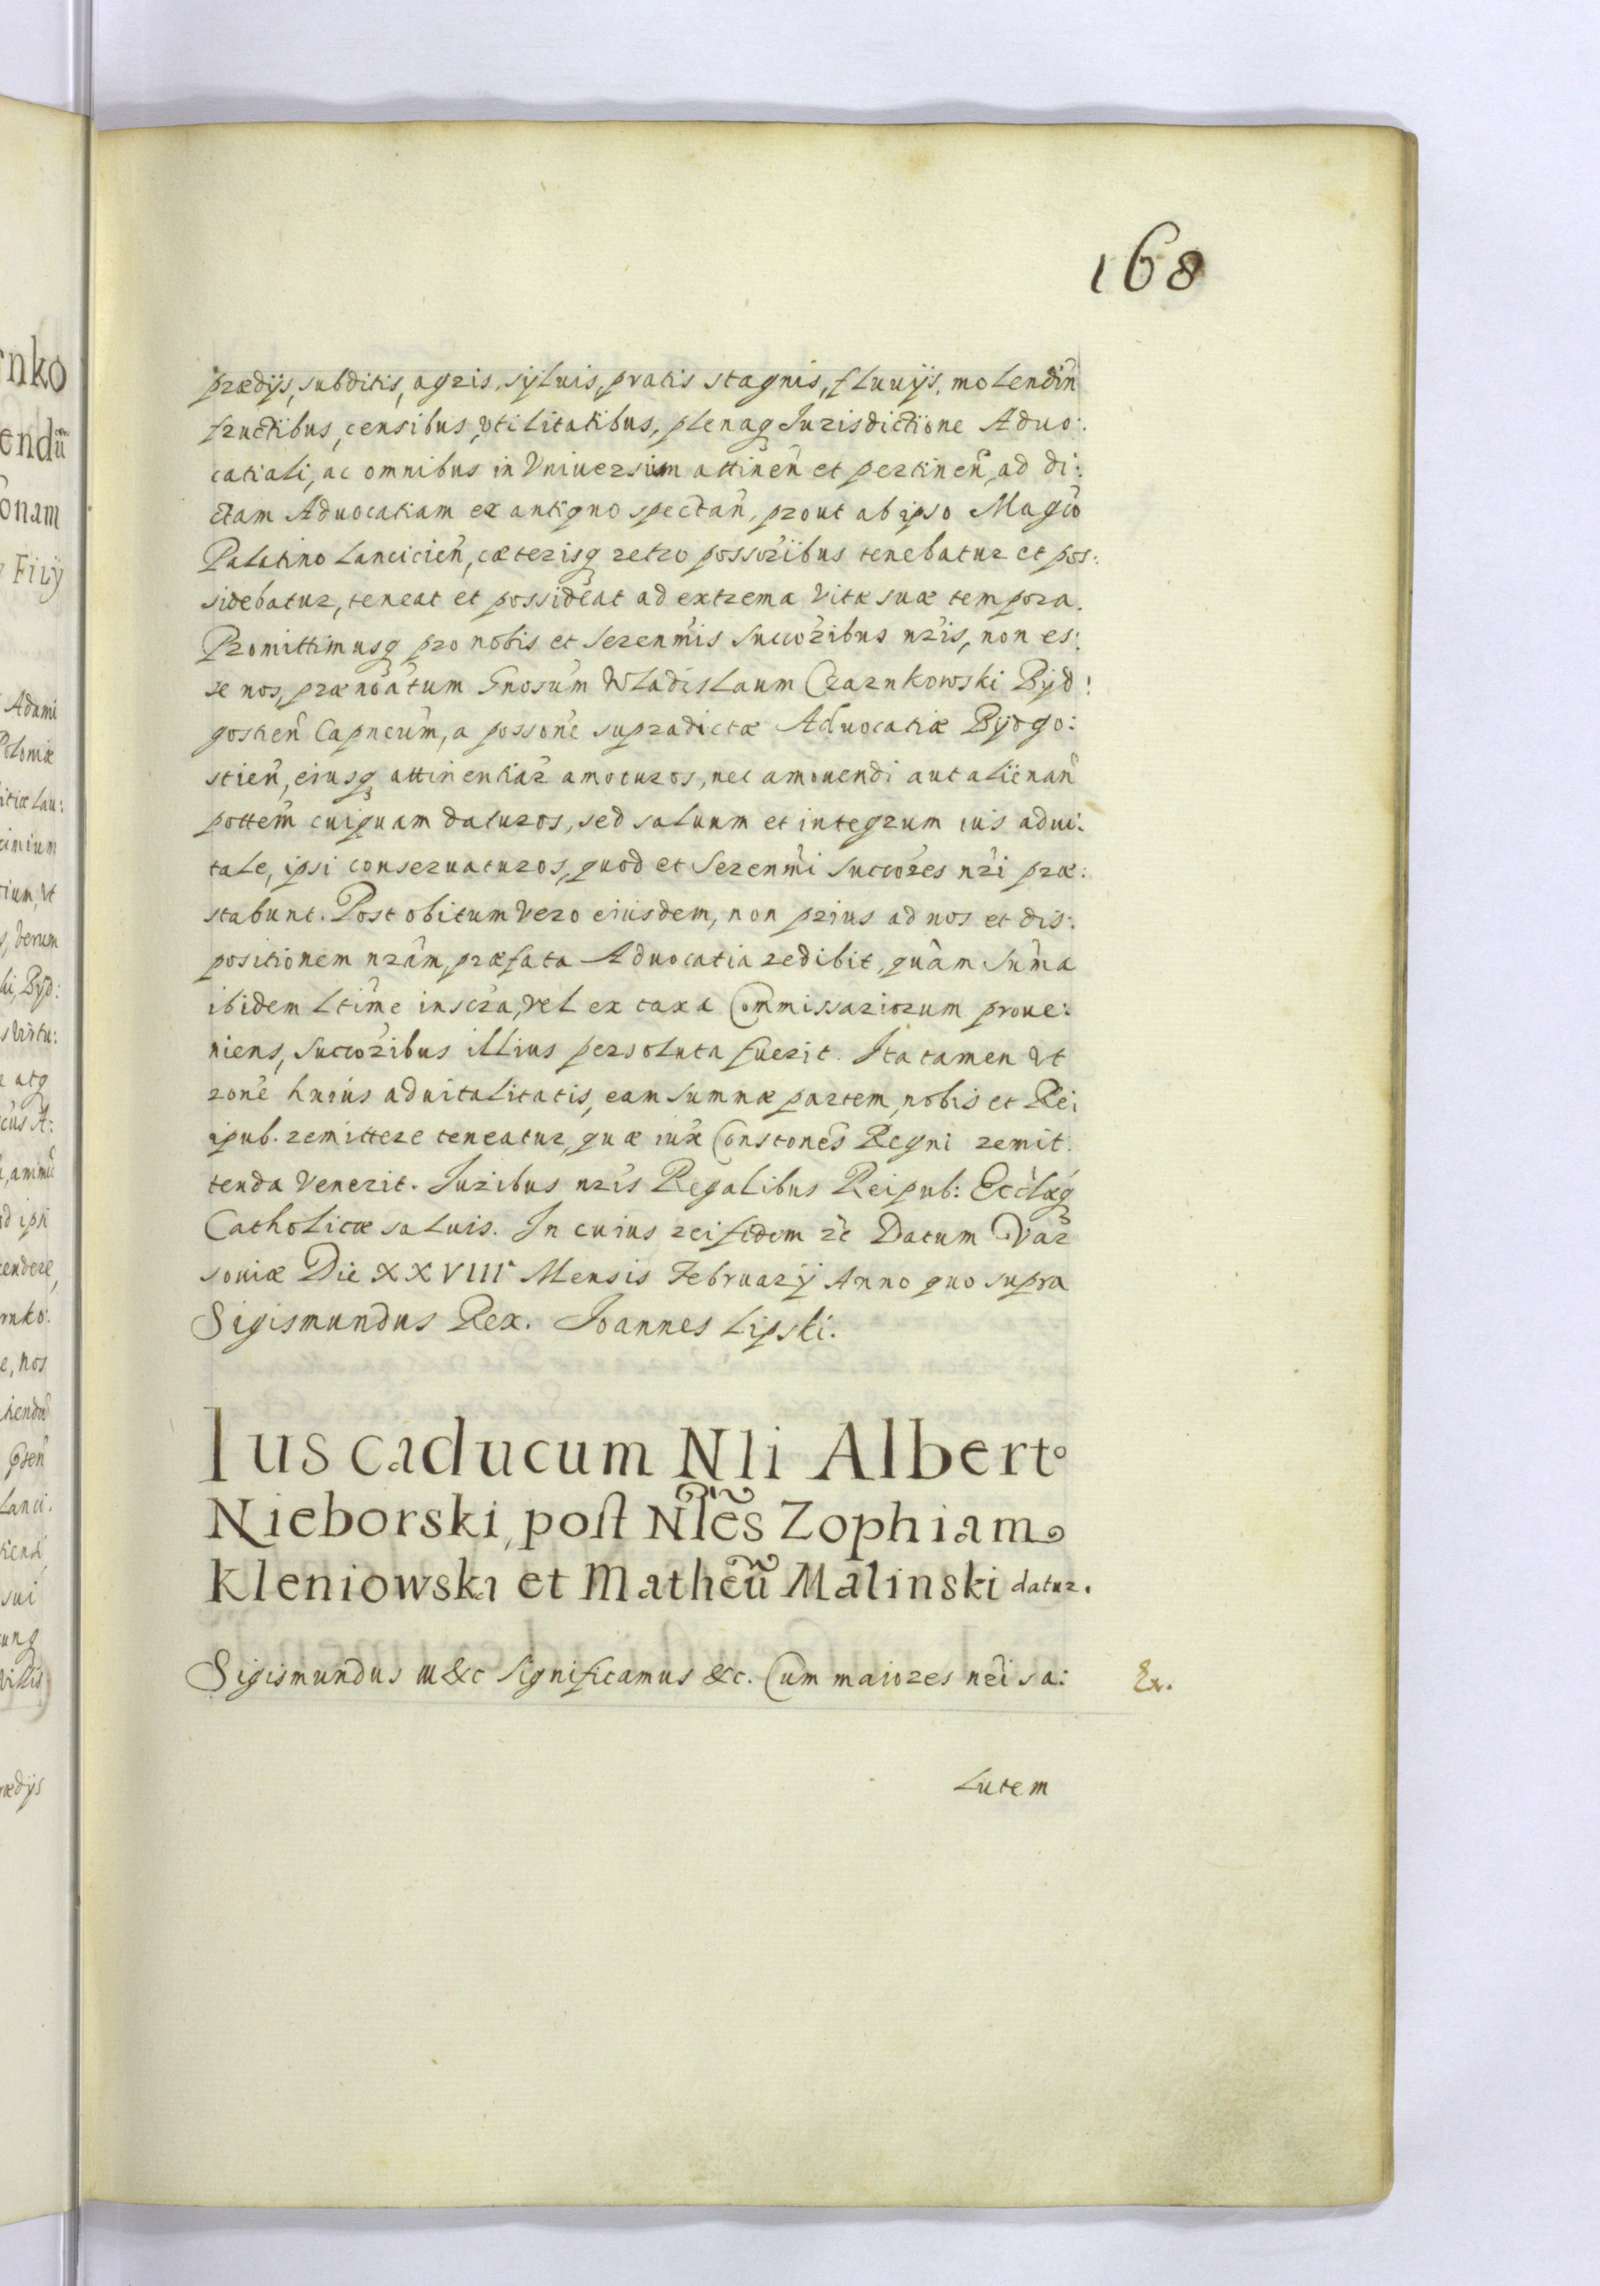 168
prædijs, subditis, agris, sijluis, pratis stagnis, fluuijs, molendin̄
fructibus, censibus, vtilitatibus, plenaq̨ Jurisdictione Aduo:
catiali, ac omnibus in Vniuersum attinen̄ et pertinen̄, ad di:
ctam Aduocatiam ex antiquo spectan̄, prout ab ipso Magco
Palatino Lancicien̄, cæterisq̨ retro possoribus tenebatur et pos:
sidebatur, teneat et possideat ad extrema vitæ suæ tempora.
Promittimusq̨ pro nobis et Serenm̄is Succoribus nr̄is, non es:
se nos, prænoātum Gnosūm Wladislaum Czarnkowski Byd:
gostien̄ Capneūm, a possone supradictæ Aduocatiæ Bydgo:
stien̄, eiusq̨ attinentiar̄ amoturos, nec amouendi aut alienan̄
pottem̄ cuiquam daturos, sed saluum et integrum ius adui:
tale, ipsi conseruaturos, quod et Serenm̄i Succores nr̄i præ:
stabunt. Post obitum vero eiusdem, non prius ad nos et dis:
positionem nrām, præfata Aduocatia redibit, quàm Sum̄a
ibidem Ltime inscra, vel ex taxa Commissariorum proue:
niens, Succoribus illius persoluta fuerit. Ita tamen vt
rone huius aduitalitatis, eam summæ partem, nobis et Rei
ipub. remittere teneatur, quæ iux̄ Constones Regni remit:
tenda venerit. Juribus nr̄is Regalibus Reipub: Ecclæq̨
Catholicæ saluis. In cuius rei fidem &c Datum Var
souiæ Die XXVIII Mensis Februarij Anno quo supra
Sigismundus Rex. Joannes Lipski.
Ius caducum Nli Alberto
Nieborski, post Nles Zophiam
Kleniowska et Matheū Malinski datur.
Sigismundus III &c Significamus &c. Cum maiores nr̄i sa:
Ex.
lutem